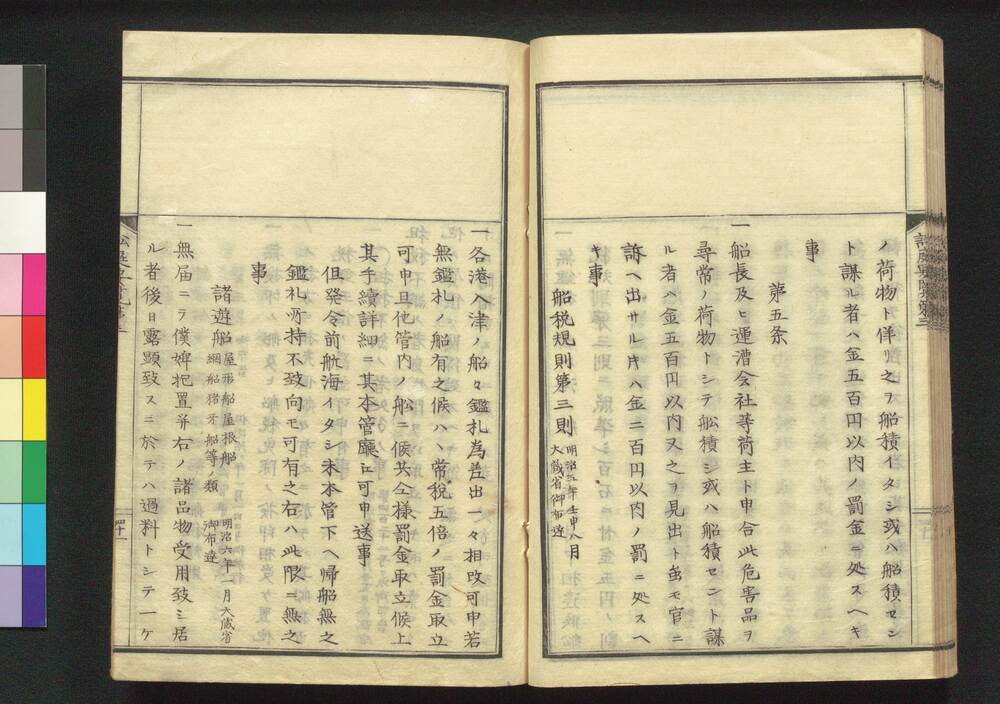 ノ荷物ト佯リ之ヲ船積イタシ或ハ船積セン
ト謀ル者ハ金五百円以内ノ罰金ニ処スヘキ
事
第五条
一船長及ヒ運漕会社等荷主ト申合此危害品ヲ
尋常ノ荷物トシテ舩積シ或ハ船積セント謀
ル者ハ金五百円以内又之ヲ見出ト虽モ官ニ
訴ヘ出サル片ハ金二百円以内ノ罰ニ処スヘ
キ事
船税規則第三則 明治五年壬申八月
大蔵省御布達
一各港入津ノ船々鑑札為差出一々相改可申若
無鑑札ノ船有之候ハヽ常税五倍ノ罰金取立
可申且他管内ノ舩ニ候共仝様罰金取立候上
其手続詳細ニ其本管廳エ可申送事
但発令前航海イタシ未本管下ヘ帰船無之
鑑札所持不致向モ可有之右ハ此限ニ無之
事
諸遊船 屋形船屋根船
網船猪牙船等ノ類 明治六年一月大蔵省
御布達
一無届ニテ僕婢抱置并右ノ諸品物受用致シ居
ル者後日露顕致スニ於テハ過料トシテ一ケ